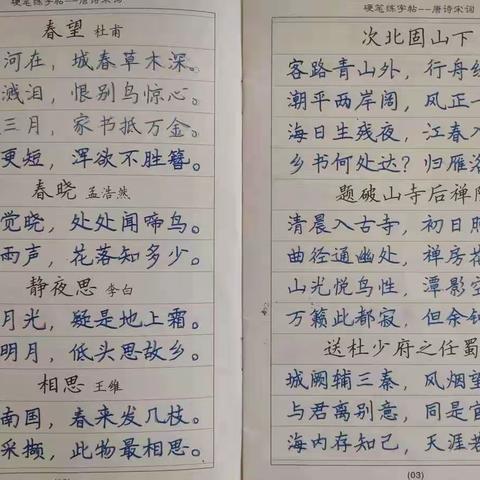 硬笔练字帖--唐诗宋词
春望 杜甫
河在，城春草木深。
溅泪，恨别鸟惊心。
三月，家书抵万金。
更短，浑欲不胜簪。
春晓 孟浩然
觉晓，处处闻啼鸟。
雨声，花落知多少。
静夜思 李白
月光，疑是地上霜。
明月，低头思故乡。
相思 王维
南国，春来发几枝。
采撷，此物最相思。
硬笔练字帖--唐诗宋词
次北固山下
客路青山外，行舟
潮平两岸阔，风正一
海日生残夜，江春入
乡书何处达？归雁
题破山寺后禅
清晨入古寺，初日
曲径通幽处，禅房
山光悦鸟性，潭影空
万籁此都寂，但余钟
送杜少府之任蜀
城阙辅三秦，风烟望
与君离别意，同是宦
海内存知己，天涯若
(03)